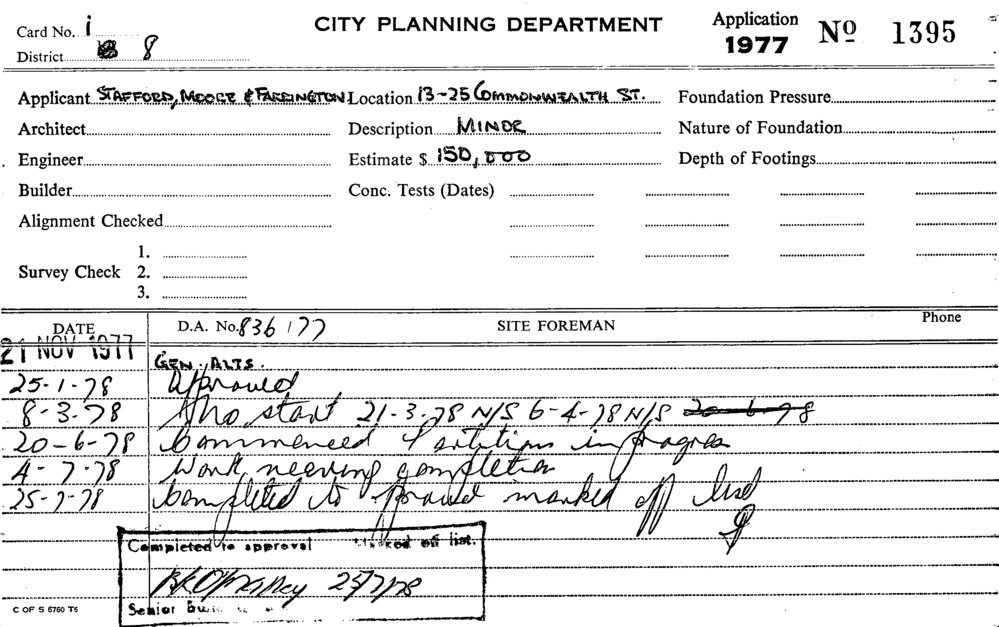 Card No. i
CITY PLANNING DEPARTMENT
Application 1977 Nº 1395
District 8
Applicant STAFFORD, MOORE & FARRINGTON Location 13-25 COMMONWEALTH ST. Foundation Pressure
Architect Description MINOR Nature of Foundation
Engineer Estimate $ 150,000 Depth of Footings
Builder Conc. Tests (Dates)
Alignment Checked
1.
Survey Check 2.
3.
DATE D.A. No. 836/77 SITE FOREMAN Phone
21 NOV 1977 GEN. ALTS.
25-1-78 Approved
8-3-78 No start 21-3-78 N/S 6-4-78 N/S 20-6-78
20-6-78 Commenced Partitions in progress
4-7-78 Work nearing completion
25-7-78 Completed to approval marked off list
Completed to approval Marked off list.
25/7/78
Senior
C OF S 6760 T6